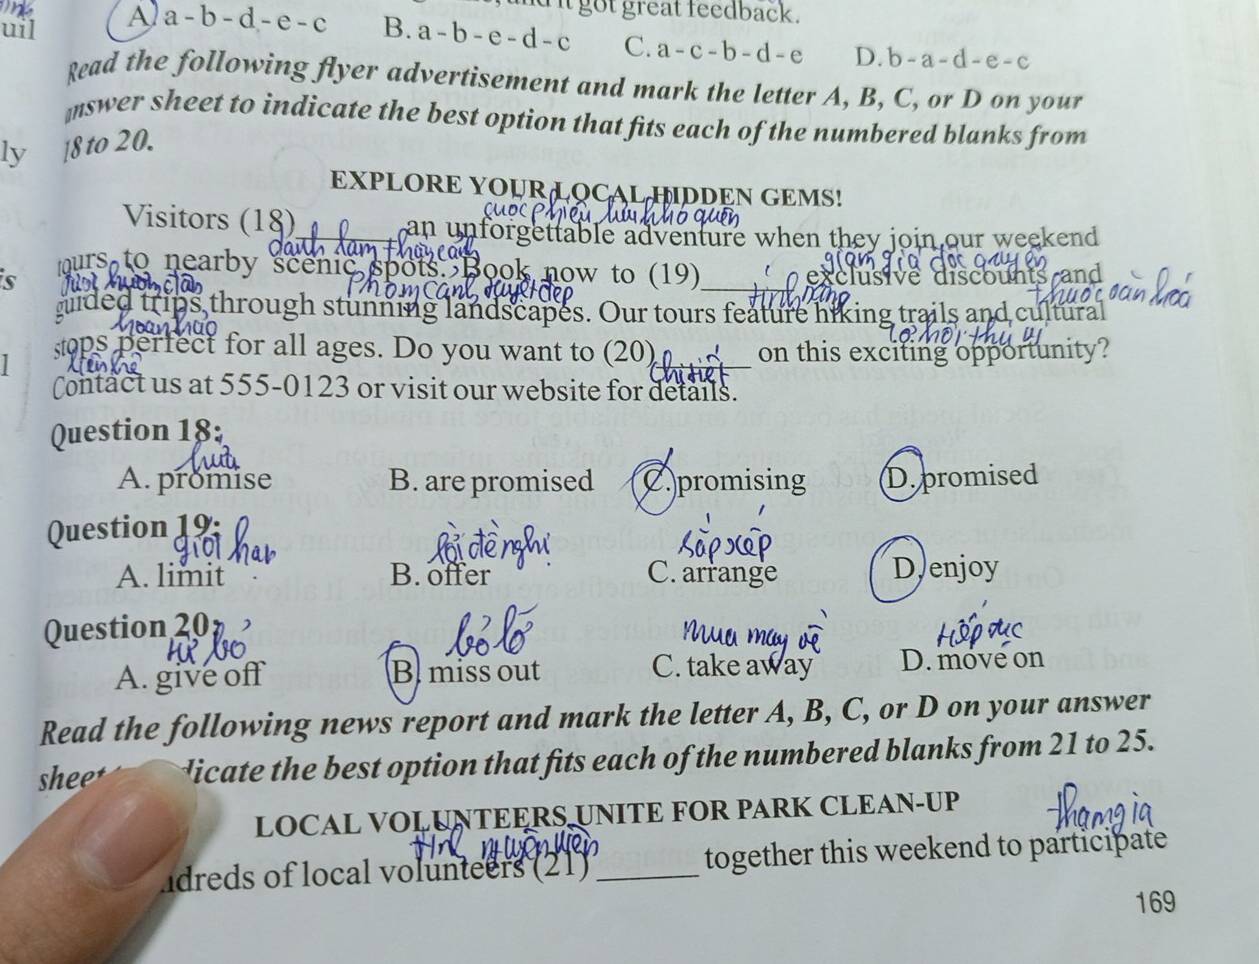 uil
got great feedback.
A. a - b - d - e - c B. a - b - e - d - c C. a - c - b - d - e D. b - a - d - e - c
Read the following flyer advertisement and mark the letter A, B, C, or D on your
answer sheet to indicate the best option that fits each of the numbered blanks from
ly 18 to 20.
EXPLORE YOUR LOCAL HIDDEN GEMS!
cuộc phiêu lưu khó quên
Visitors (18) ______ an unforgettable adventure when they join our weekend
danh lam thắng cảnh giảm giá độc quyền
is tours to nearby scenic spots. Book now to (19) ______ exclusive discounts and
phong cảnh tuyệt đẹp tính năng thuộc văn hoá
guided trips through stunning landscapes. Our tours feature hiking trails and cultural
hoàn hảo cơ hội thú vị
stops perfect for all ages. Do you want to (20) ______ on this exciting opportunity?
liên hệ chi tiết
Contact us at 555-0123 or visit our website for details.
Question 18:
hứa
A. promise B. are promised C. promising D. promised
Question 19:
giới hạn lời đề nghị sắp xếp
A. limit B. offer C. arrange D. enjoy
Question 20:
từ bỏ bỏ lỡ mua mang về tiếp tục
A. give off B. miss out C. take away D. move on
Read the following news report and mark the letter A, B, C, or D on your answer
sheet dicate the best option that fits each of the numbered blanks from 21 to 25.
LOCAL VOLUNTEERS UNITE FOR PARK CLEAN-UP
tình nguyện viên tham gia
dreds of local volunteers (21) ______ together this weekend to participate
169